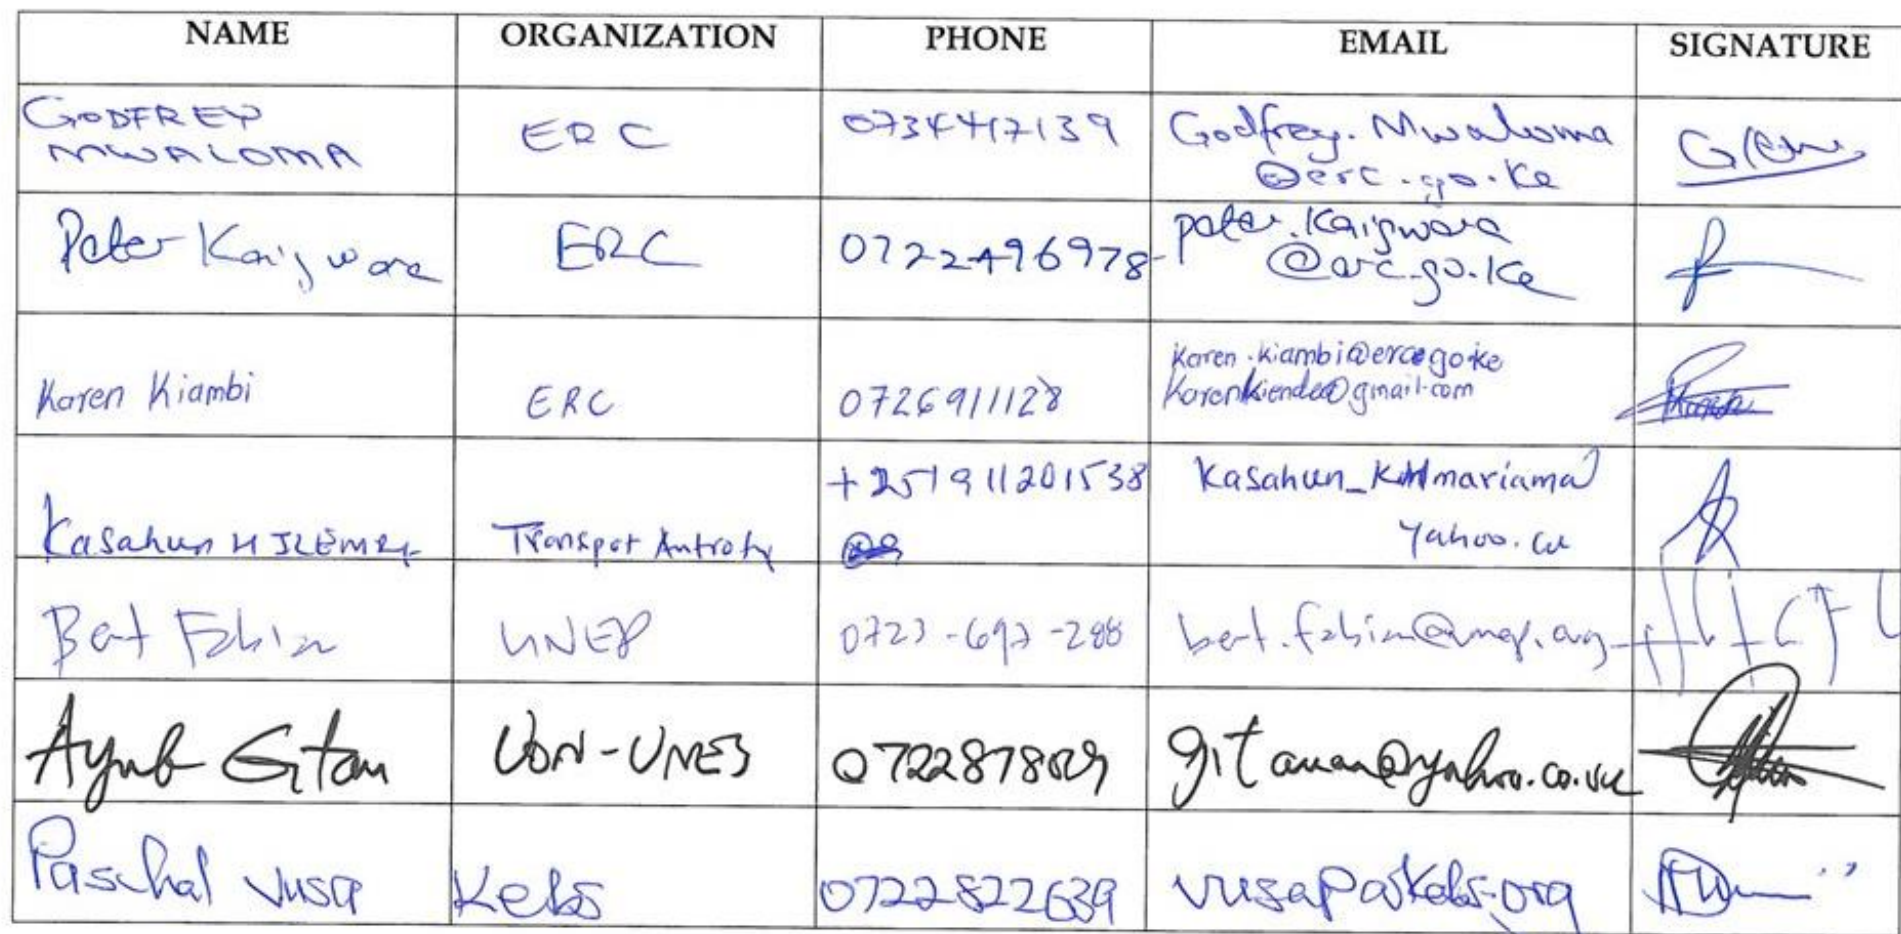 NAME ORGANIZATION PHONE EMAIL SIGNATURE
GODFREY MWALOMA ERC 0734417139 Godfrey.Mwaloma
@erc.go.ke
Peter Kaigwara ERC 0722496978 peter.Kaigwara
@erc.go.ke
Karen Kiambi ERC 0726911128 Karen.kiambi@erc.go.ke
Karenkiende@gmail.com
+251911201538
Kasahun Transpot Yahoo.
Bert Fabian UNEP 0723-693-288 bert.fabian@unep.org
Ayub Gitau UON-UNES @yahoo.co.uk
Paschal Vusa Kebs 0722822639 vusap@kebs.org